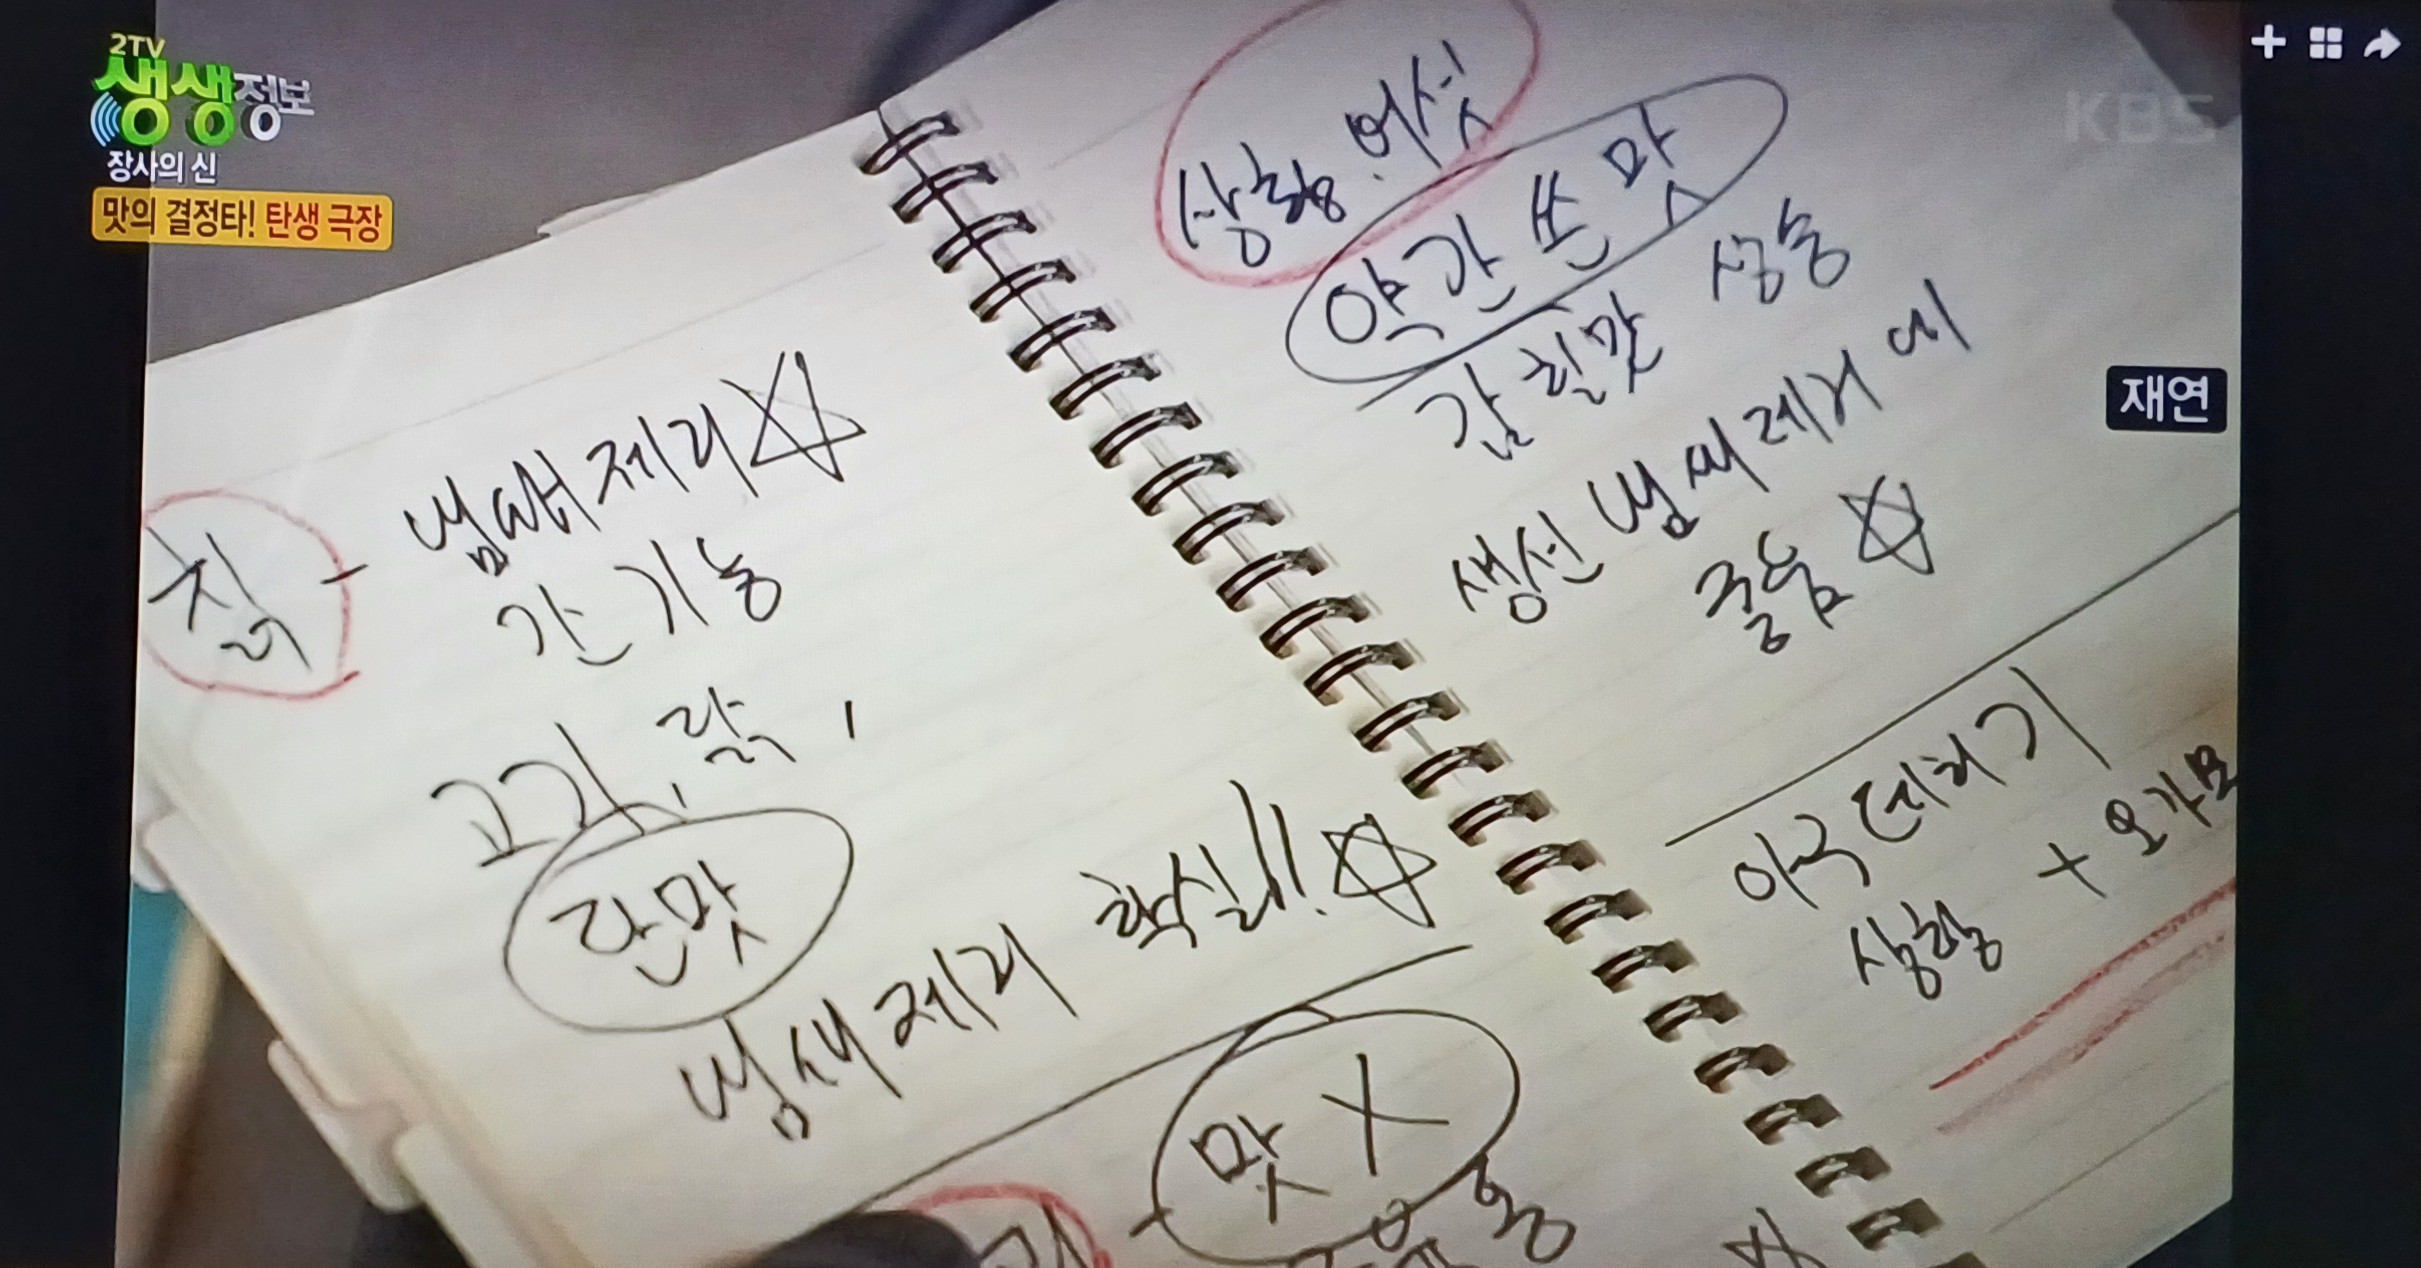 2TV
생생정보
장사의 신
맛의 결정타! 탄생 극장
KBS
재연
칡 - 냄새제거☆
간기능
고기, 닭,
단맛
냄새제거 확실!!☆
맛 X
상황버섯
약간 쓴맛
감칠맛 상승
생선 냄새제거에
좋음☆
아구 데치기
상황 + 오가모